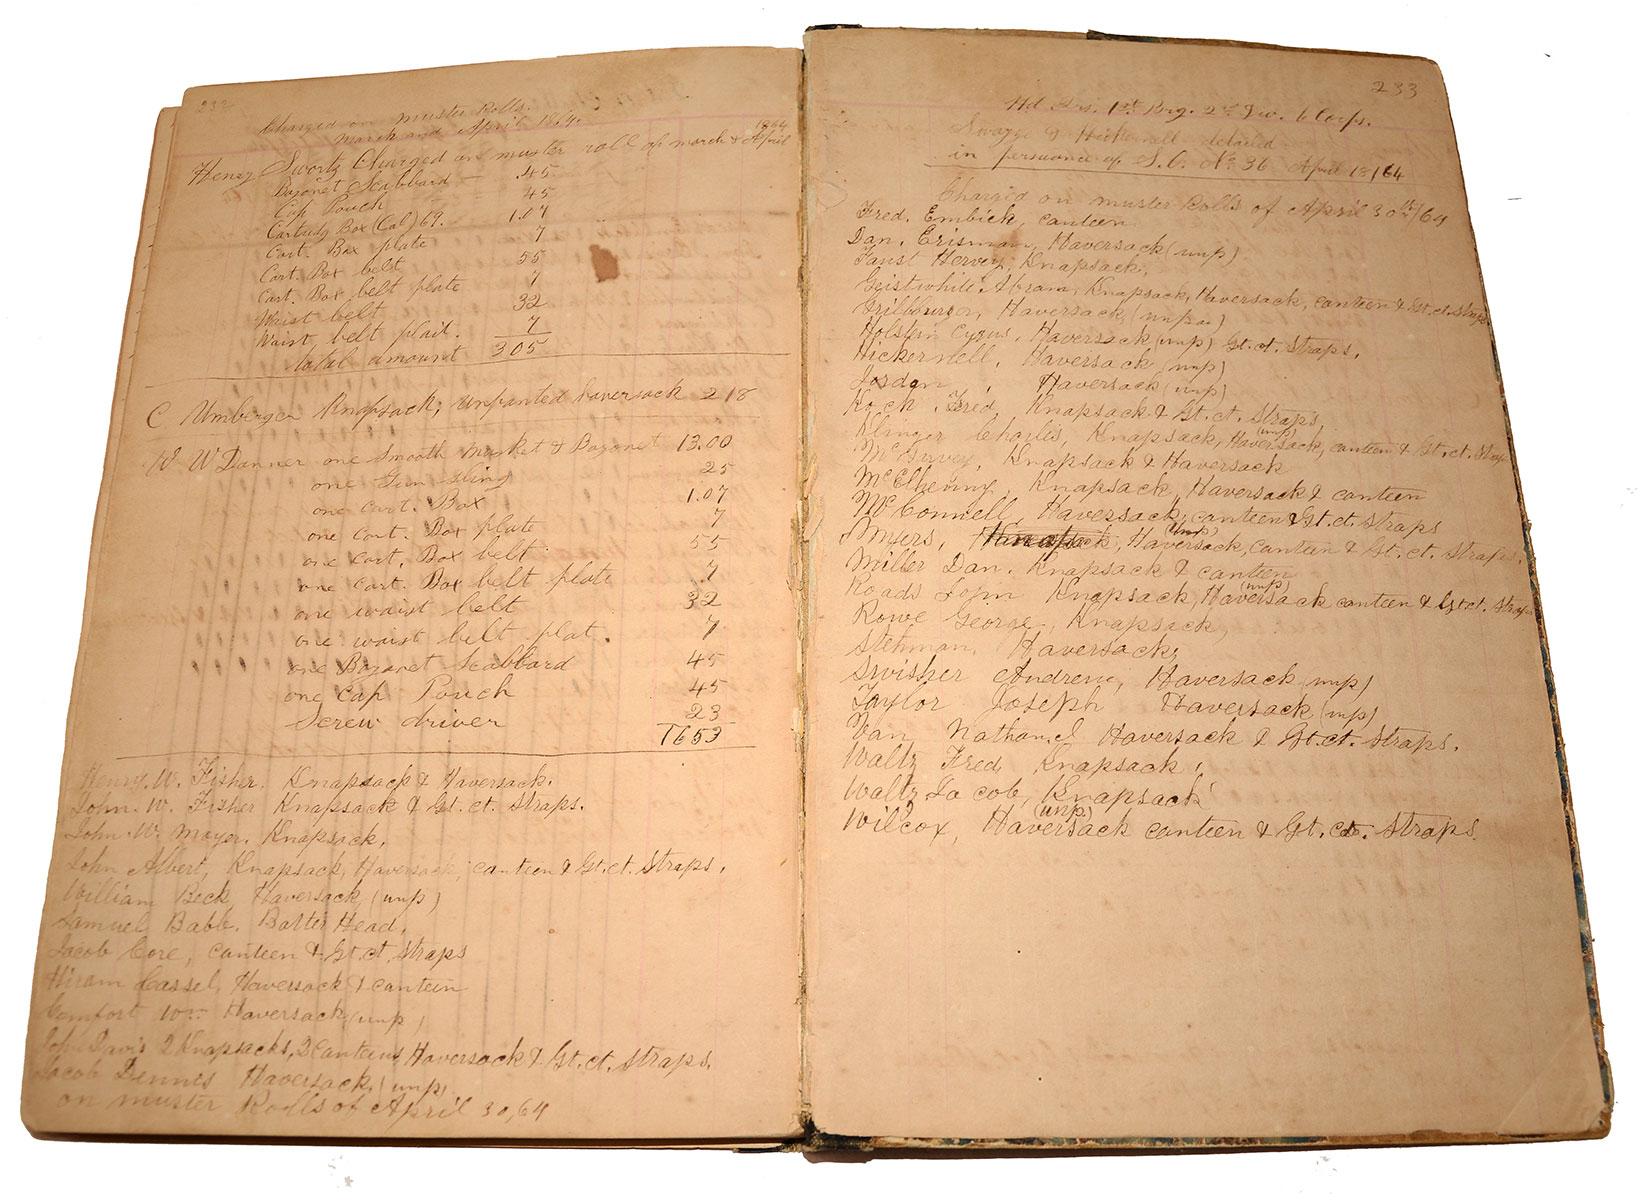 232
Charged on muster Rolls.
March and April 1864.
Henry Swartz Charged on muster roll of march & April 1864
Bayonet Scabbard .45
Cap Pouch 45
Cartridg Box (Cal) 69. 1.07
Cart. Box plate 7
Cart. Box belt 55
Cart. Box belt plate 7
Waist belt 32
Waist belt plait. 7
total amount 305
C Umberger Knapsack; unpanted haversack 218
W Danner one Smooth Musket & Bayonet 13.00
one Gun sling 25
one Cart. Box 1.07
one Cart. Box plate 7
one Cart. Box belt 55
one Cart. Box belt plate .7
one waist belt 32
one waist belt plat. 7
one Bayonet Scabbard 45
one Cap Pouch 45
Screw driver 23
1653
Henry. W. Fisher. Knapsack & Haversack.
John. W. Fisher Knapsack & Gt. ct. Straps.
John W. Moyer. Knapsack.
John Albert, Knapsack, Haversack, canteen & Gt. ct. Straps.
William Beck Haversack, (unp)
Samuel Babb. Batter Head.
Jacob Core, canteen & Gt. ct. straps
Hiram Cassel, Haversack & canteen
Comfort Wm Haversack, (unp)
John Davis 2 Knapsacks, 2 Canteens Haversack & Gt. ct. straps.
Jacob Dennis Haversack, (unp)
on muster Roolls of April 30, 64
233
Hd Qrs. 1st Brig. 2nd Div. 6 Corps.
& Hickernell detailed
in persuance of S. O. No. 36 April 18/64
Charged on muster Rolls of April 30th/64
Fred. Embick, canteen
Dan. Erisman, Haversack (unp)
Faust Hervey, Knapsack,
Geistwhite Abram, Knapsack, Haversack, canteen & Gt. ct. straps.
Haversack, (unpa)
Holstein Cyrus, Haversack (unp) Gt. ct. Straps.
Hickernell, Haversack (unp)
Josdan, Haversack (unp)
Koch, Fred, Knapsack & Gt. ct. Straps,
Klinger Charles, Knapsack, Haversack, (unp) canteen & Gt. ct. Straps
McGarvey, Knapsack & Haversack
McElhenny, Knapsack, Haversack & canteen
McConnell, Haversack, canteen & Gt. ct. straps
Myers, Knapsack, Haversack, (unp) canteen & Gt. ct. Straps.
Miller Dan. Knapsack & canteen
Roads John Knapsack, Haversack (unp) canteen & Gt. ct. Straps
Rowe George, Knapsack,
Stehman, Haversack,
Swisher Andrew, Haversack unp)
Taylor Joseph Haversack, (unp)
Van Nathanel Haversack & Gt. ct. straps.
Waltz Fred, Knapsack,
Waltz Jacob, Knapsack
Wilcox, Haversack (unp) canteen & Gt. ct. Straps